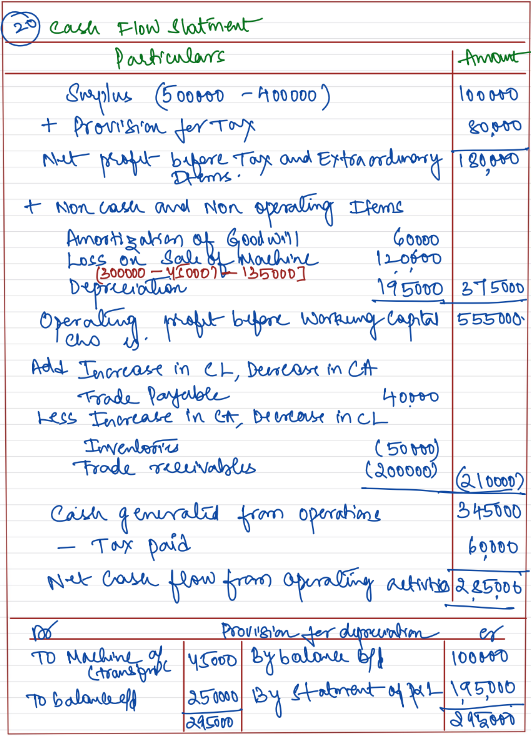 20 Cash Flow Statment
Particulars Amount
Surplus (500000 - 400000) 100000
+ Provision for Tax 80,000
Net profit before Tax and Extraordinary Items. 180,000
+ Non cash and Non operating Items
Amortization of Goodwill 60000
Loss on Sale of Machine 120000
(300000 - 45000) - 135000]
Depreciation 195000 375000
Operating profit before Working Capital 555000
Add Increase in CL, Decrease in CA
Trade Payable 40000
Less Increase in CA, Decrease in CL
Inventories (50000)
Trade receivables (200000) (210000)
Cash generated from operations 345000
- Tax paid 60000
Net Cash flow from operating activities 285000
Dr Provision for depreciation cr
To Machine 45000 By balance b/f 100000
To balance c/d 250000 By Statment of P&L 195,000
295000 295000